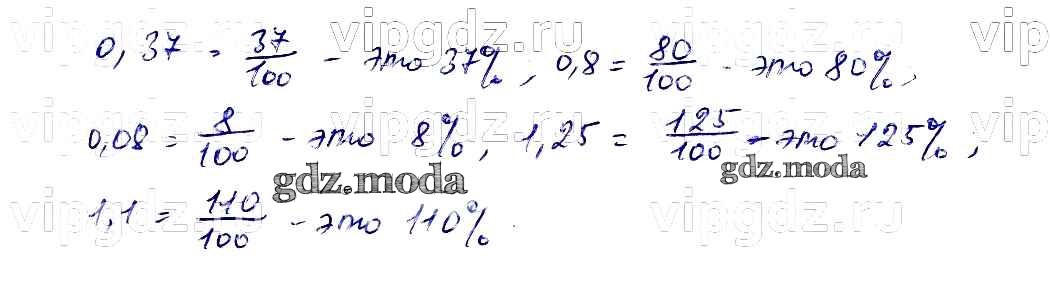 vipgdz.ru vipgdz.ru vipgdz.ru vipgdz.ru
0,37 = 37/100 - это 37%, 0,8 = 80/100 - это 80%,
vipgdz.ru vipgdz.ru vipgdz.ru vipgdz.ru
0,08 = 8/100 - это 8%, 1,25 = 125/100 - это 125%,
gdz.moda gdz.moda
vipgdz.ru vipgdz.ru vipgdz.ru vipgdz.ru
1,1 = 110/100 - это 110%.